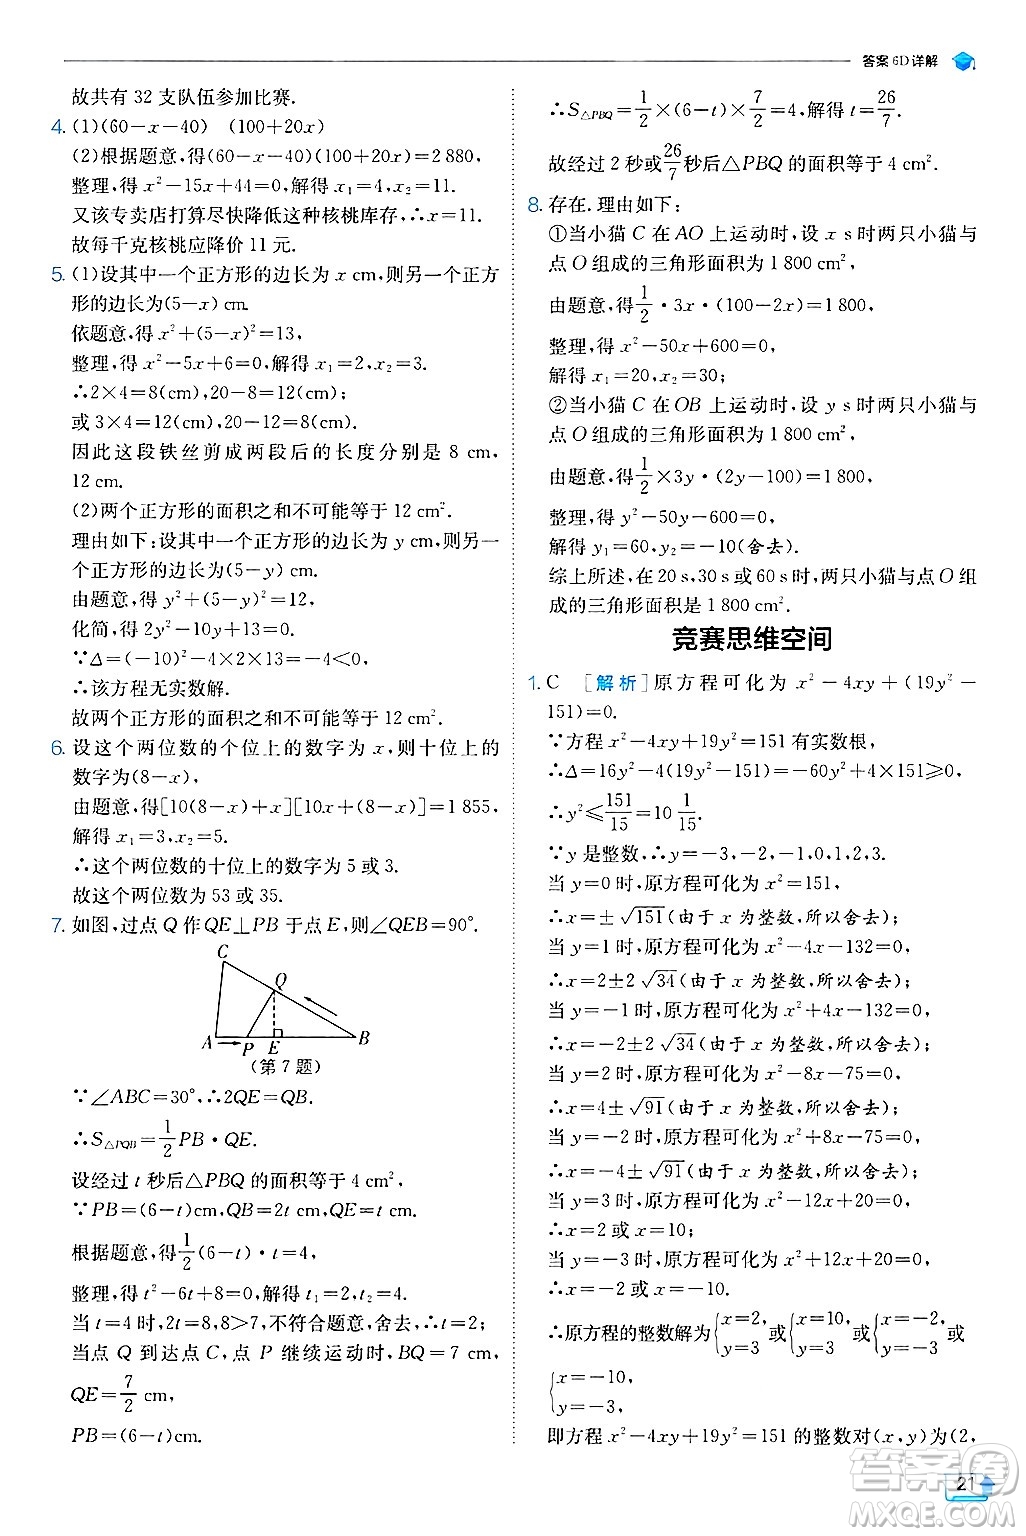 答案 6D 详解
故共有 32 支队伍参加比赛.
4. (1)(60-x-40) (100+20x)
(2)根据题意,得(60-x-40)(100+20x)=2 880,
整理,得 x²-15x+44=0,解得 x₁=4,x₂=11.
又该专卖店打算尽快降低这种核桃库存,∴x=11.
故每千克核桃应降价 11 元.
5. (1)设其中一个正方形的边长为 x cm,则另一个正方
形的边长为(5-x) cm.
依题意,得 x²+(5-x)²=13,
整理,得 x²-5x+6=0,解得 x₁=2,x₂=3.
∴2×4=8(cm),20-8=12(cm);
或 3×4=12(cm),20-12=8(cm).
因此这段铁丝剪成两段后的长度分别是 8 cm,
12 cm.
(2)两个正方形的面积之和不可能等于 12 cm².
理由如下:设其中一个正方形的边长为 y cm,则另一
个正方形的边长为(5-y) cm.
由题意,得 y²+(5-y)²=12,
化简,得 2y²-10y+13=0.
∵Δ=(-10)²-4×2×13=-4<0,
∴该方程无实数解.
故两个正方形的面积之和不可能等于 12 cm².
6. 设这个两位数的个位上的数字为 x,则十位上的
数字为(8-x),
由题意,得[10(8-x)+x][10x+(8-x)]=1 855,
解得 x₁=3,x₂=5.
∴这个两位数的十位上的数字为 5 或 3.
故这个两位数为 53 或 35.
7. 如图,过点 Q 作 QE⊥PB 于点 E,则∠QEB=90°.
C
Q
A P E B
(第 7 题)
∵∠ABC=30°,∴2QE=QB.
∴S△PQB=1/2 PB·QE.
设经过 t 秒后△PBQ 的面积等于 4 cm²,
∵PB=(6-t)cm,QB=2t cm,QE=t cm.
根据题意,得 1/2(6-t)·t=4,
整理,得 t²-6t+8=0,解得 t₁=2,t₂=4.
当 t=4 时,2t=8,8>7,不符合题意,舍去,∴t=2;
当点 Q 到达点 C,点 P 继续运动时,BQ=7 cm,
QE=7/2 cm,
PB=(6-t)cm.
∴S△PBQ=1/2×(6-t)×7/2=4,解得 t=26/7.
故经过 2 秒或 26/7 秒后△PBQ 的面积等于 4 cm².
8. 存在.理由如下:
①当小猫 C 在 AO 上运动时,设 x s时两只小猫与
点 O 组成的三角形面积为 1 800 cm²,
由题意,得 1/2·3x·(100-2x)=1 800,
整理,得 x²-50x+600=0,
解得 x₁=20,x₂=30;
②当小猫 C 在 OB 上运动时,设 y s时两只小猫与
点 O 组成的三角形面积为 1 800 cm²,
由题意,得 1/2×3y·(2y-100)=1 800,
整理,得 y²-50y-600=0,
解得 y₁=60,y₂=-10(舍去).
综上所述,在 20 s,30 s 或 60 s 时,两只小猫与点 O 组
成的三角形面积是 1 800 cm².
竞赛思维空间
1. C [解析]原方程可化为 x²-4xy+(19y²-
151)=0.
∵方程 x²-4xy+19y²=151 有实数根,
∴Δ=16y²-4(19y²-151)=-60y²+4×151⩾0,
∴y²⩽151/15=10 1/15.
∵y 是整数,∴y=-3,-2,-1,0,1,2,3.
当 y=0 时,原方程可化为 x²=151,
∴x=±√151(由于 x 为整数,所以舍去);
当 y=1 时,原方程可化为 x²-4x-132=0,
∴x=2±2√34(由于 x 为整数,所以舍去);
当 y=-1 时,原方程可化为 x²+4x-132=0,
∴x=-2±2√34(由于 x 为整数,所以舍去);
当 y=2 时,原方程可化为 x²-8x-75=0,
∴x=4±√91(由于 x 为整数,所以舍去);
当 y=-2 时,原方程可化为 x²+8x-75=0,
∴x=-4±√91(由于 x 为整数,所以舍去);
当 y=3 时,原方程可化为 x²-12x+20=0,
∴x=2 或 x=10;
当 y=-3 时,原方程可化为 x²+12x+20=0,
∴x=-2 或 x=-10.
∴原方程的整数解为{x=2, y=3 或{x=10, y=3 或{x=-2, y=-3 或
{x=-10, y=-3.
即方程 x²-4xy+19y²=151 的整数对(x,y)为(2,
21
答案圈
MXQE.COM